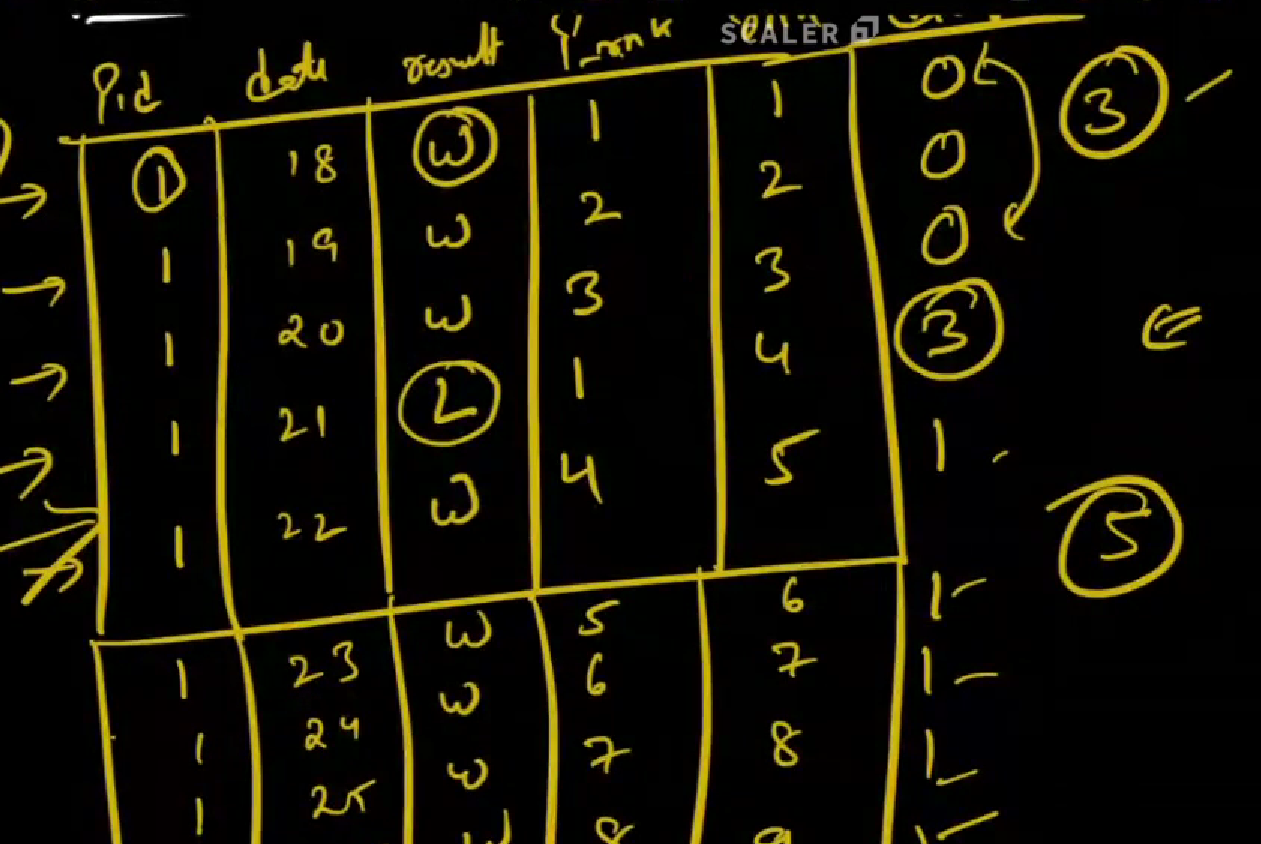 SCALER
Pid date result Y_rnk
1 18 W 1 1 0 3
1 19 W 2 2 0
1 20 W 3 3 0
1 21 L 1 4 3
1 22 W 4 5 1 5
1 23 W 5 6 1
1 24 W 6 7 1
1 25 W 7 8 1
W 8 9 1